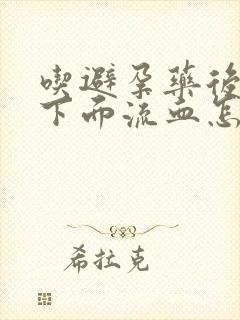 喫避孕藥後
下面流血怎
希拉克